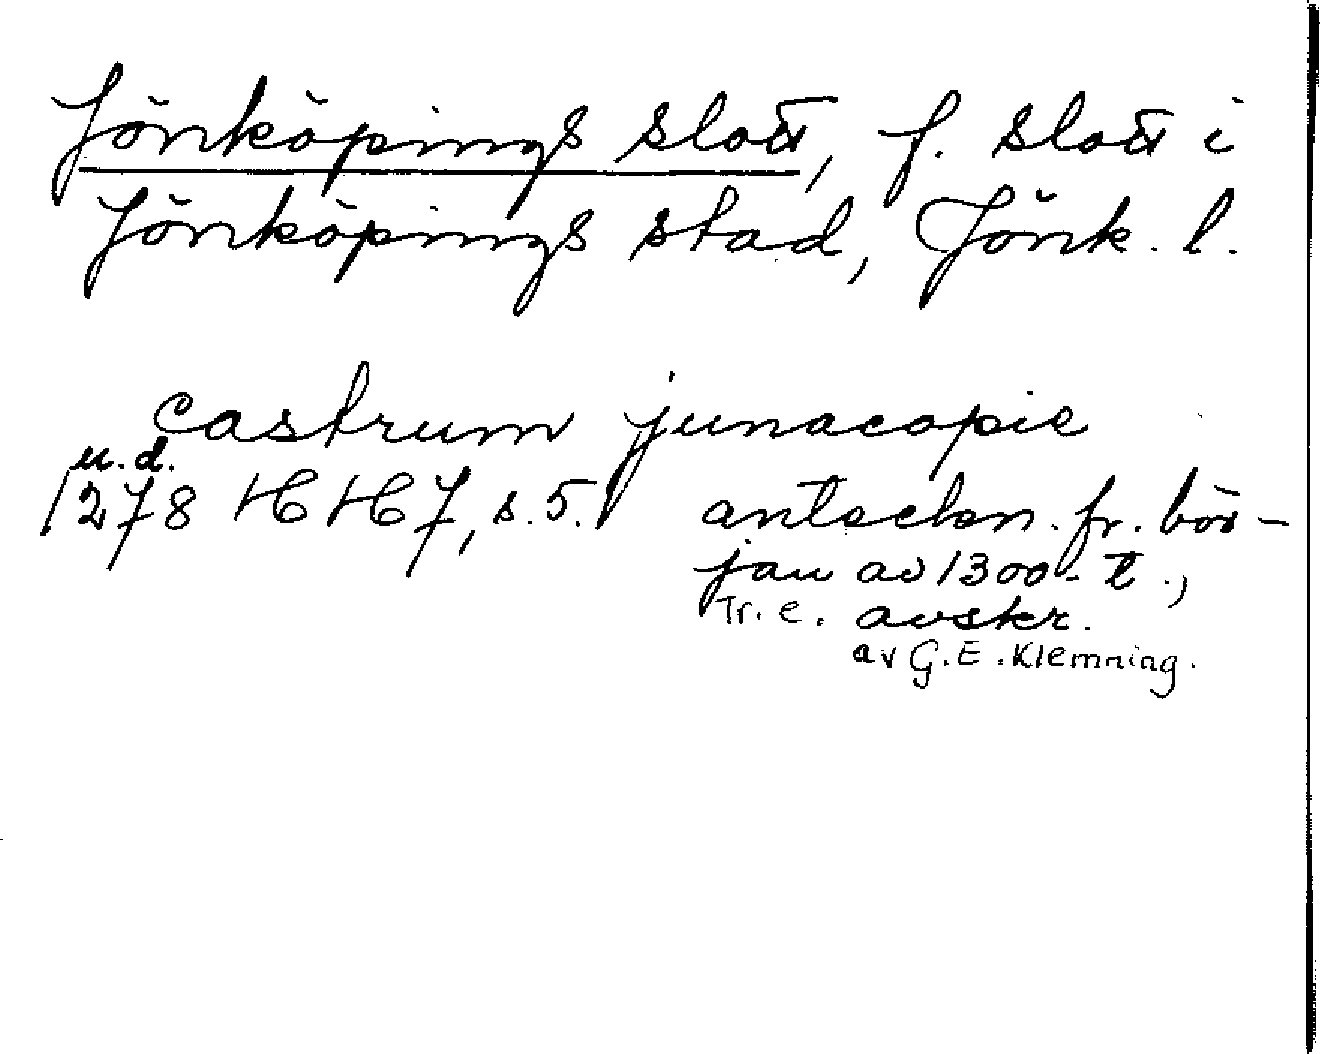 Jönköpings slott, f. slott i
Jönköpings stad, Jönk. l.
castrum junacopie
u.d.
1278 HH 7, s. 5. anteckn. fr. bör-
jan av 1300-t.,
Tr. e. avskr.
av G. E. Klemming.